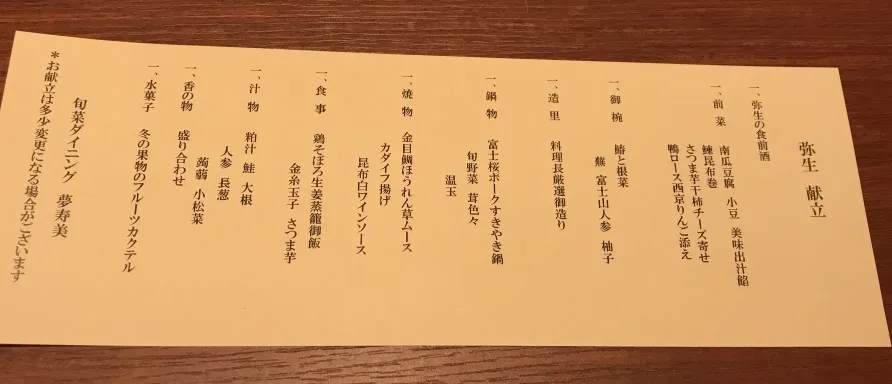 弥生 献立
一、弥生の食前酒
一、前菜 南瓜豆腐 小豆 美味出汁餡
鰊昆布巻
さつま芋干柿チーズ寄せ
鴨ロース西京りんご添え
一、御椀 鰆と根菜
蕪 富士山人参 柚子
一、造里 料理長厳選御造り
一、鍋物 富士桜ポークすきやき鍋
旬野菜 茸色々
温玉
一、焼物 金目鯛ほうれん草ムース
カダイフ揚げ
昆布白ワインソース
一、食事 鶏そぼろ生姜蒸籠御飯
金糸玉子 さつま芋
一、汁物 粕汁 鮭 大根
人参 長葱
蒟蒻 小松菜
一、香の物 盛り合わせ
一、水菓子 冬の果物のフルーツカクテル
旬菜ダイニング 夢寿美
＊お献立は多少変更になる場合がございます